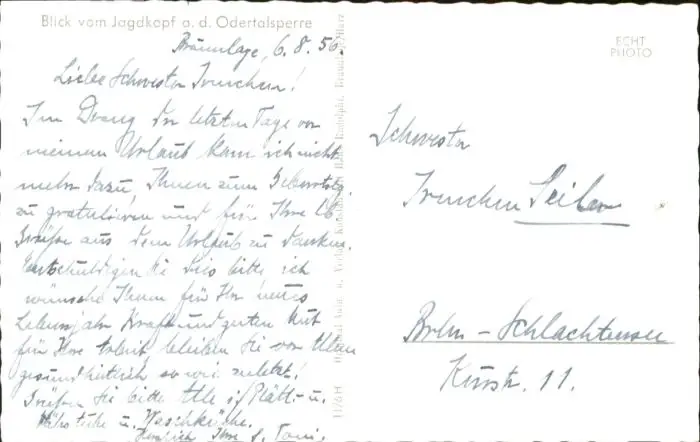 Blick vom Jagdkopf a. d. Odertalsperre
Braunlage, 6. 8. 56.
Liebe Schwester Irmchen!
Im Drang der letzten Tage vor
meinem Urlaub kam ich nicht
mehr dazu, Ihnen zum Geburtstag
zu gratulieren und für Ihre lb
Grüße aus dem Urlaub zu danken.
Entschuldigen Sie dies bitte ich
wünsche Ihnen für Ihr neues
Lebensjahr Kraft und guten Mut
für Ihre Arbeit, bleiben Sie vor Allem
gesundheitlich so wie zuletzt!
Grüßen Sie bitte Alle i/Plätt- u.
Nähstube u. Waschküche.
Herzlich Ihre S. Toni.
ECHT
PHOTO
Schwester
Irmchen Seiler
Berlin - Schlachtensee
Kurstr. 11.